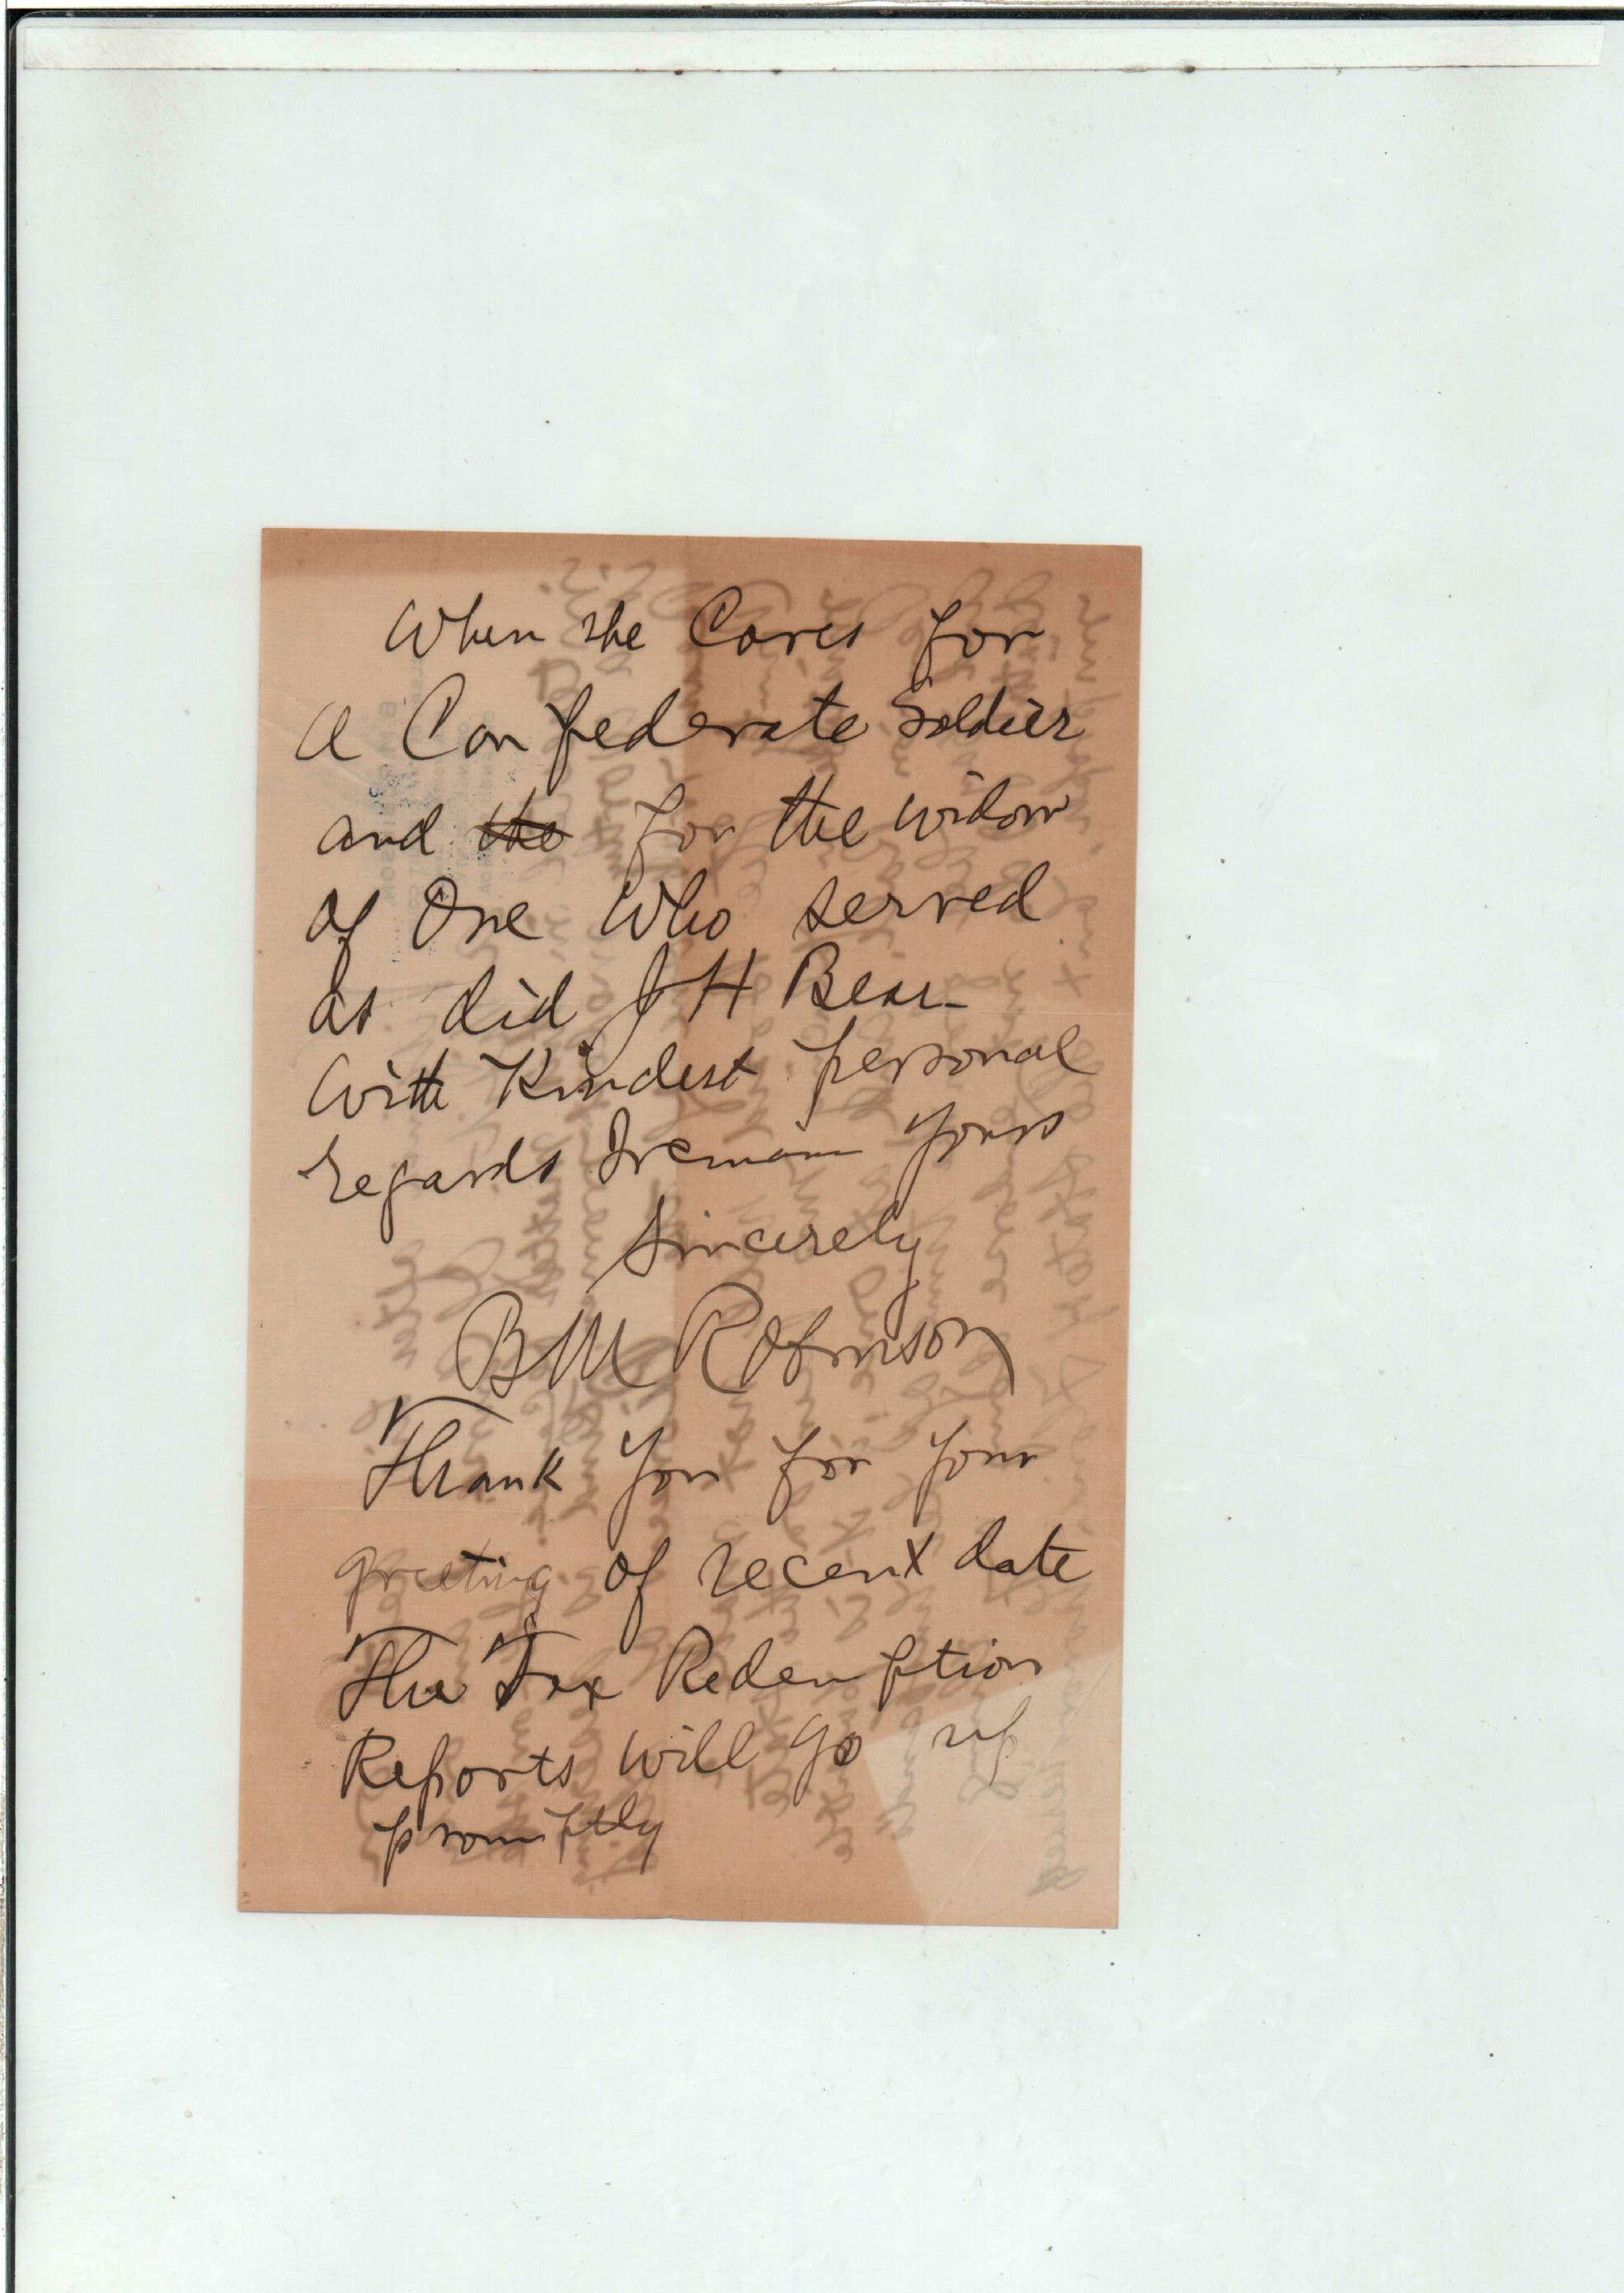 When she Cares for
a Confederate soldier
and the for the widow
of One Who served
as did J H Bear-
With Kindest personal
regards I remain Yours
Sincerely
B M Robinson
Thank You for your
greeting of recent date
The Tax Redemption
Reports will go up
promptly